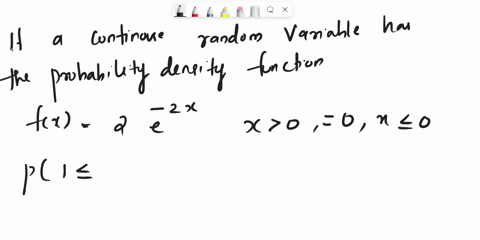 If a continuoue random variable has
the probability density function
f(x) = 2 e^{-2x} x > 0 , = 0, x ≤ 0
p( 1 ≤